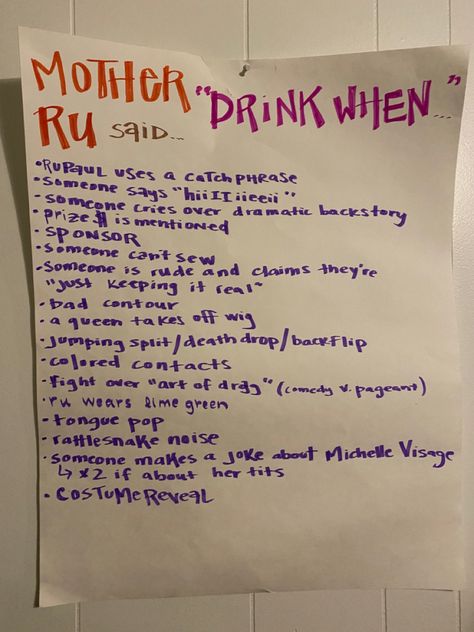 MOTHER RU said... "DRINK WHEN..."
• RuPaul uses a catchphrase
• someone says "hiiIIiieeii"
• someone cries over dramatic backstory
• prize $ is mentioned
• SPONSOR
• someone can't sew
• Someone is rude and claims they're
"just keeping it real"
• bad contour
• a queen takes off wig
• jumping split/death drop/backflip
• colored contacts
• fight over "art of drag" (comedy v. pageant)
• ru wears lime green
• tongue pop
• rattlesnake noise
• someone makes a joke about Michelle Visage
↳ x2 if about her tits
• COSTUME REVEAL